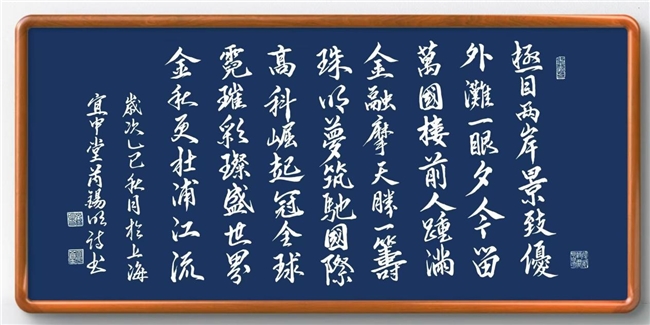 極目两岸景致優
外灘一眼夕今留
萬國樓前人踵滿
金融摩天勝一籌
珠明夢筑馳國際
高科崛起冠全球
霓璀彩璨盛世界
金秋更壮浦江流
歲次乙巳秋月於上海
宜中堂芮錫明詩书